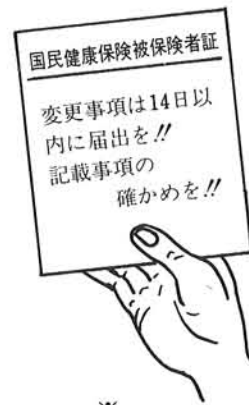 国民健康保険被保険者証
変更事項は14日以
内に届出を!!
記載事項の
確かめを!!